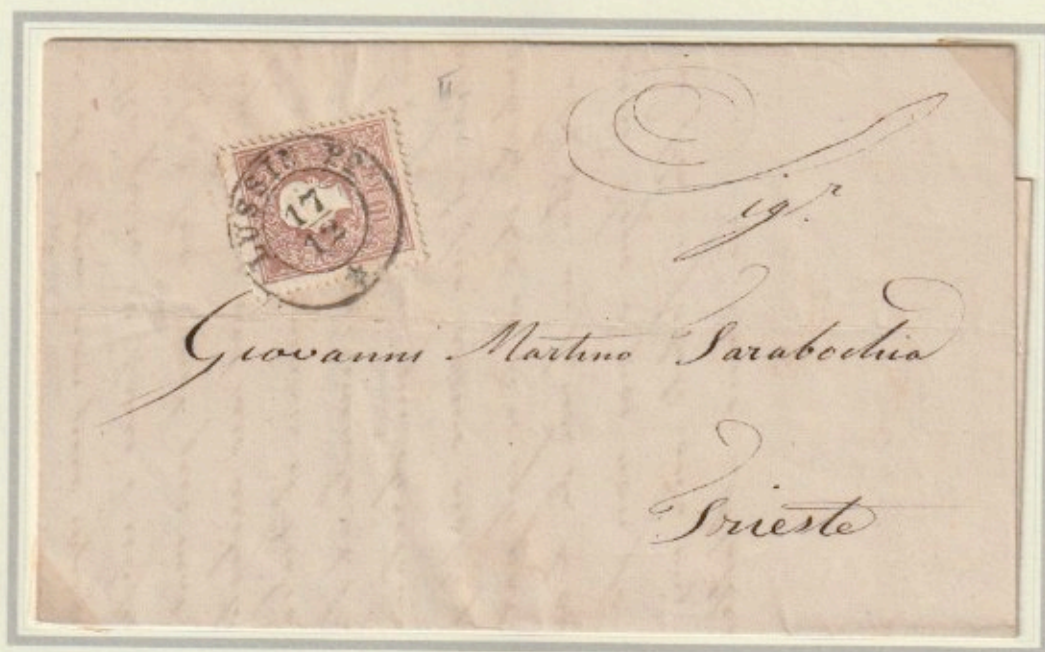 II
LUSSIN PICCOLO
17
12
10 KR
Sig.r
Giovanni Martino Sarabochia
Trieste